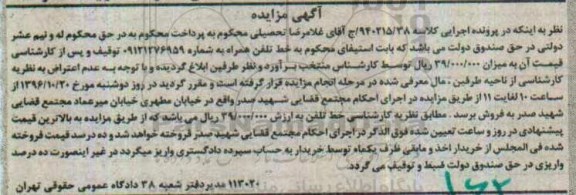 آگهی مزایده
نظر به اینکه در پرونده اجرایی کلاسه ۹۴۰۲۱۵/۳۸/ج آقای غلامرضا تحصیلی محکوم به پرداخت محکوم به در حق محکوم له و نیم عشر
دولتی در حق صندوق دولت می باشد که بابت استیفای محکوم به خط تلفن همراه به شماره ۰۹۱۲۱۲۷۶۹۵۹ توقیف و پس از کارشناسی
قیمت آن به میزان ۳۹/۰۰۰/۰۰۰ ریال توسط کارشناس منتخب برآورد و نظر طرفین ابلاغ گردیده و با توجه به عدم اعتراض به نظریه
کارشناسی از ناحیه طرفین، مال معرفی شده در مرحله انجام مزایده قرار گرفته است و مقرر گردید در روز دوشنبه مورخ ۱۳۹۶/۱۰/۳۰
ساعت ۱۰ لغایت ۱۱ از طریق مزایده در اجرای احکام مجتمع قضایی شهید صدر واقع در خیابان مطهری خیابان میرعماد مجتمع قضایی
شهید صدر به فروش برسد. مطابق نظریه کارشناسی خط تلفن به ارزش ۳۹/۰۰۰/۰۰۰ ریال می باشد که از طریق مزایده به بالاترین قیمت
پیشنهادی در روز و ساعت تعیین شده فوق الذکر در اجرای احکام مجتمع قضایی شهید صدر فروخته خواهد شد و ده درصد قیمت فروخته
شده فی المجلس از خریدار اخذ و مابقی ظرف یکماه توسط خریدار به حساب سپرده دادگستری واریز میگردد در غیر اینصورت ده درصد
واریزی در حق صندوق دولت ضبط و توقیف می گردد.
۱۱۳۰۲۰ مدیردفتر شعبه ۳۸ دادگاه عمومی حقوقی تهران